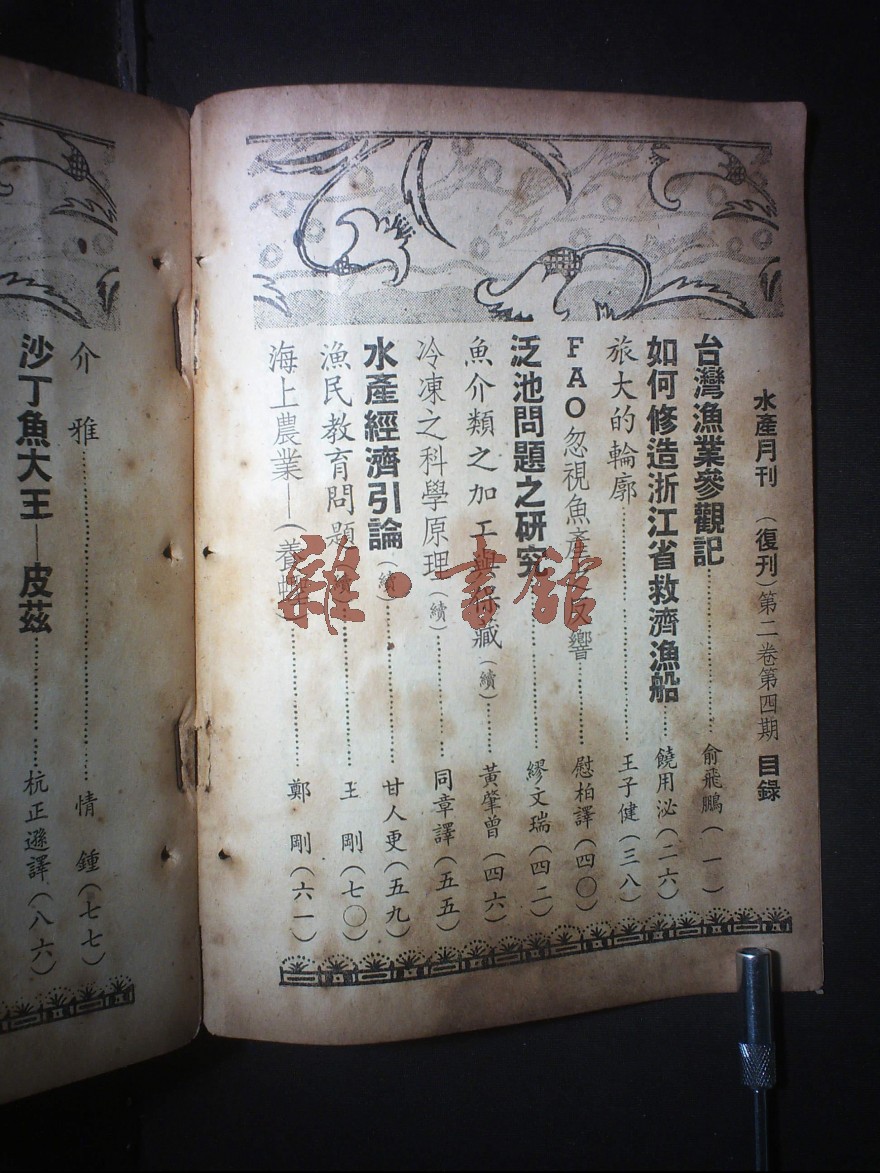 水產月刊 (復刊)第二卷第四期 目錄
台灣漁業參觀記……俞飛鵬(一)
如何修造浙江省救濟漁船……饒用泌(二六)
旅大的輪廓……王子健(三八)
FAO忽視魚產之反響……慰柏譯(四〇)
泛池問題之研究……繆文瑞(四二)
魚介類之加工與保藏(續)……黃肇曾(四六)
冷凍之科學原理(續)……同章譯(五五)
水產經濟引論(續)……甘人更(五九)
漁民教育問題(續)……王剛(七〇)
海上農業—(養蠣)……鄭剛(六一)
介雅……情鍾(七七)
沙丁魚大王—皮茲……杭正遜譯(八六)
雜·書館